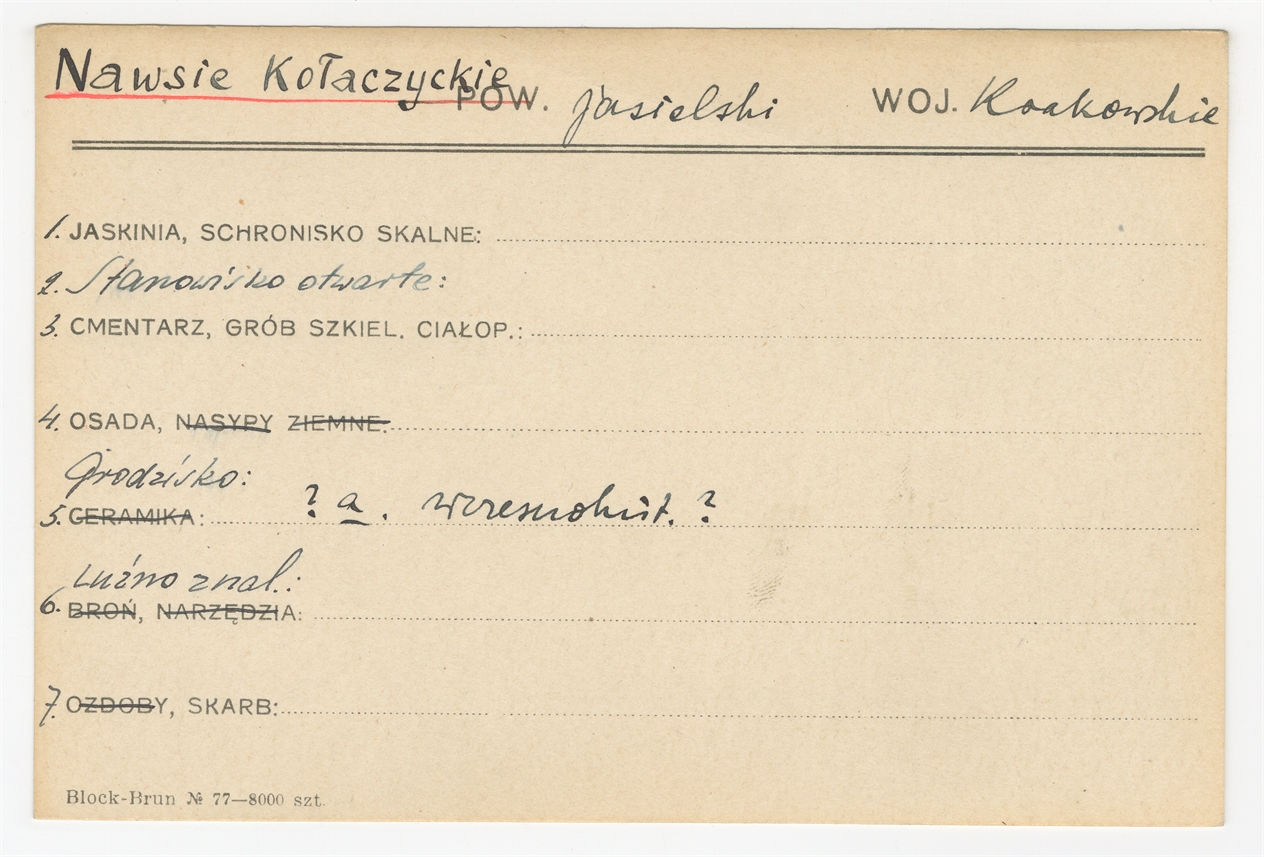 Nawsie Kołaczyckie POW. jasielski WOJ. Krakowskie
1. JASKINIA, SCHRONISKO SKALNE:
2. Stanowisko otwarte:
3. CMENTARZ, GRÓB SZKIEL. CIAŁOP.:
4. OSADA, NASYPY ZIEMNE:
Grodzisko:
5. CERAMIKA: ? a. wczesnohist. ?
Luźno znal.:
6. BROŃ, NARZĘDZIA:
7. OZDOBY, SKARB:
Block-Brun № 77—8000 szt.